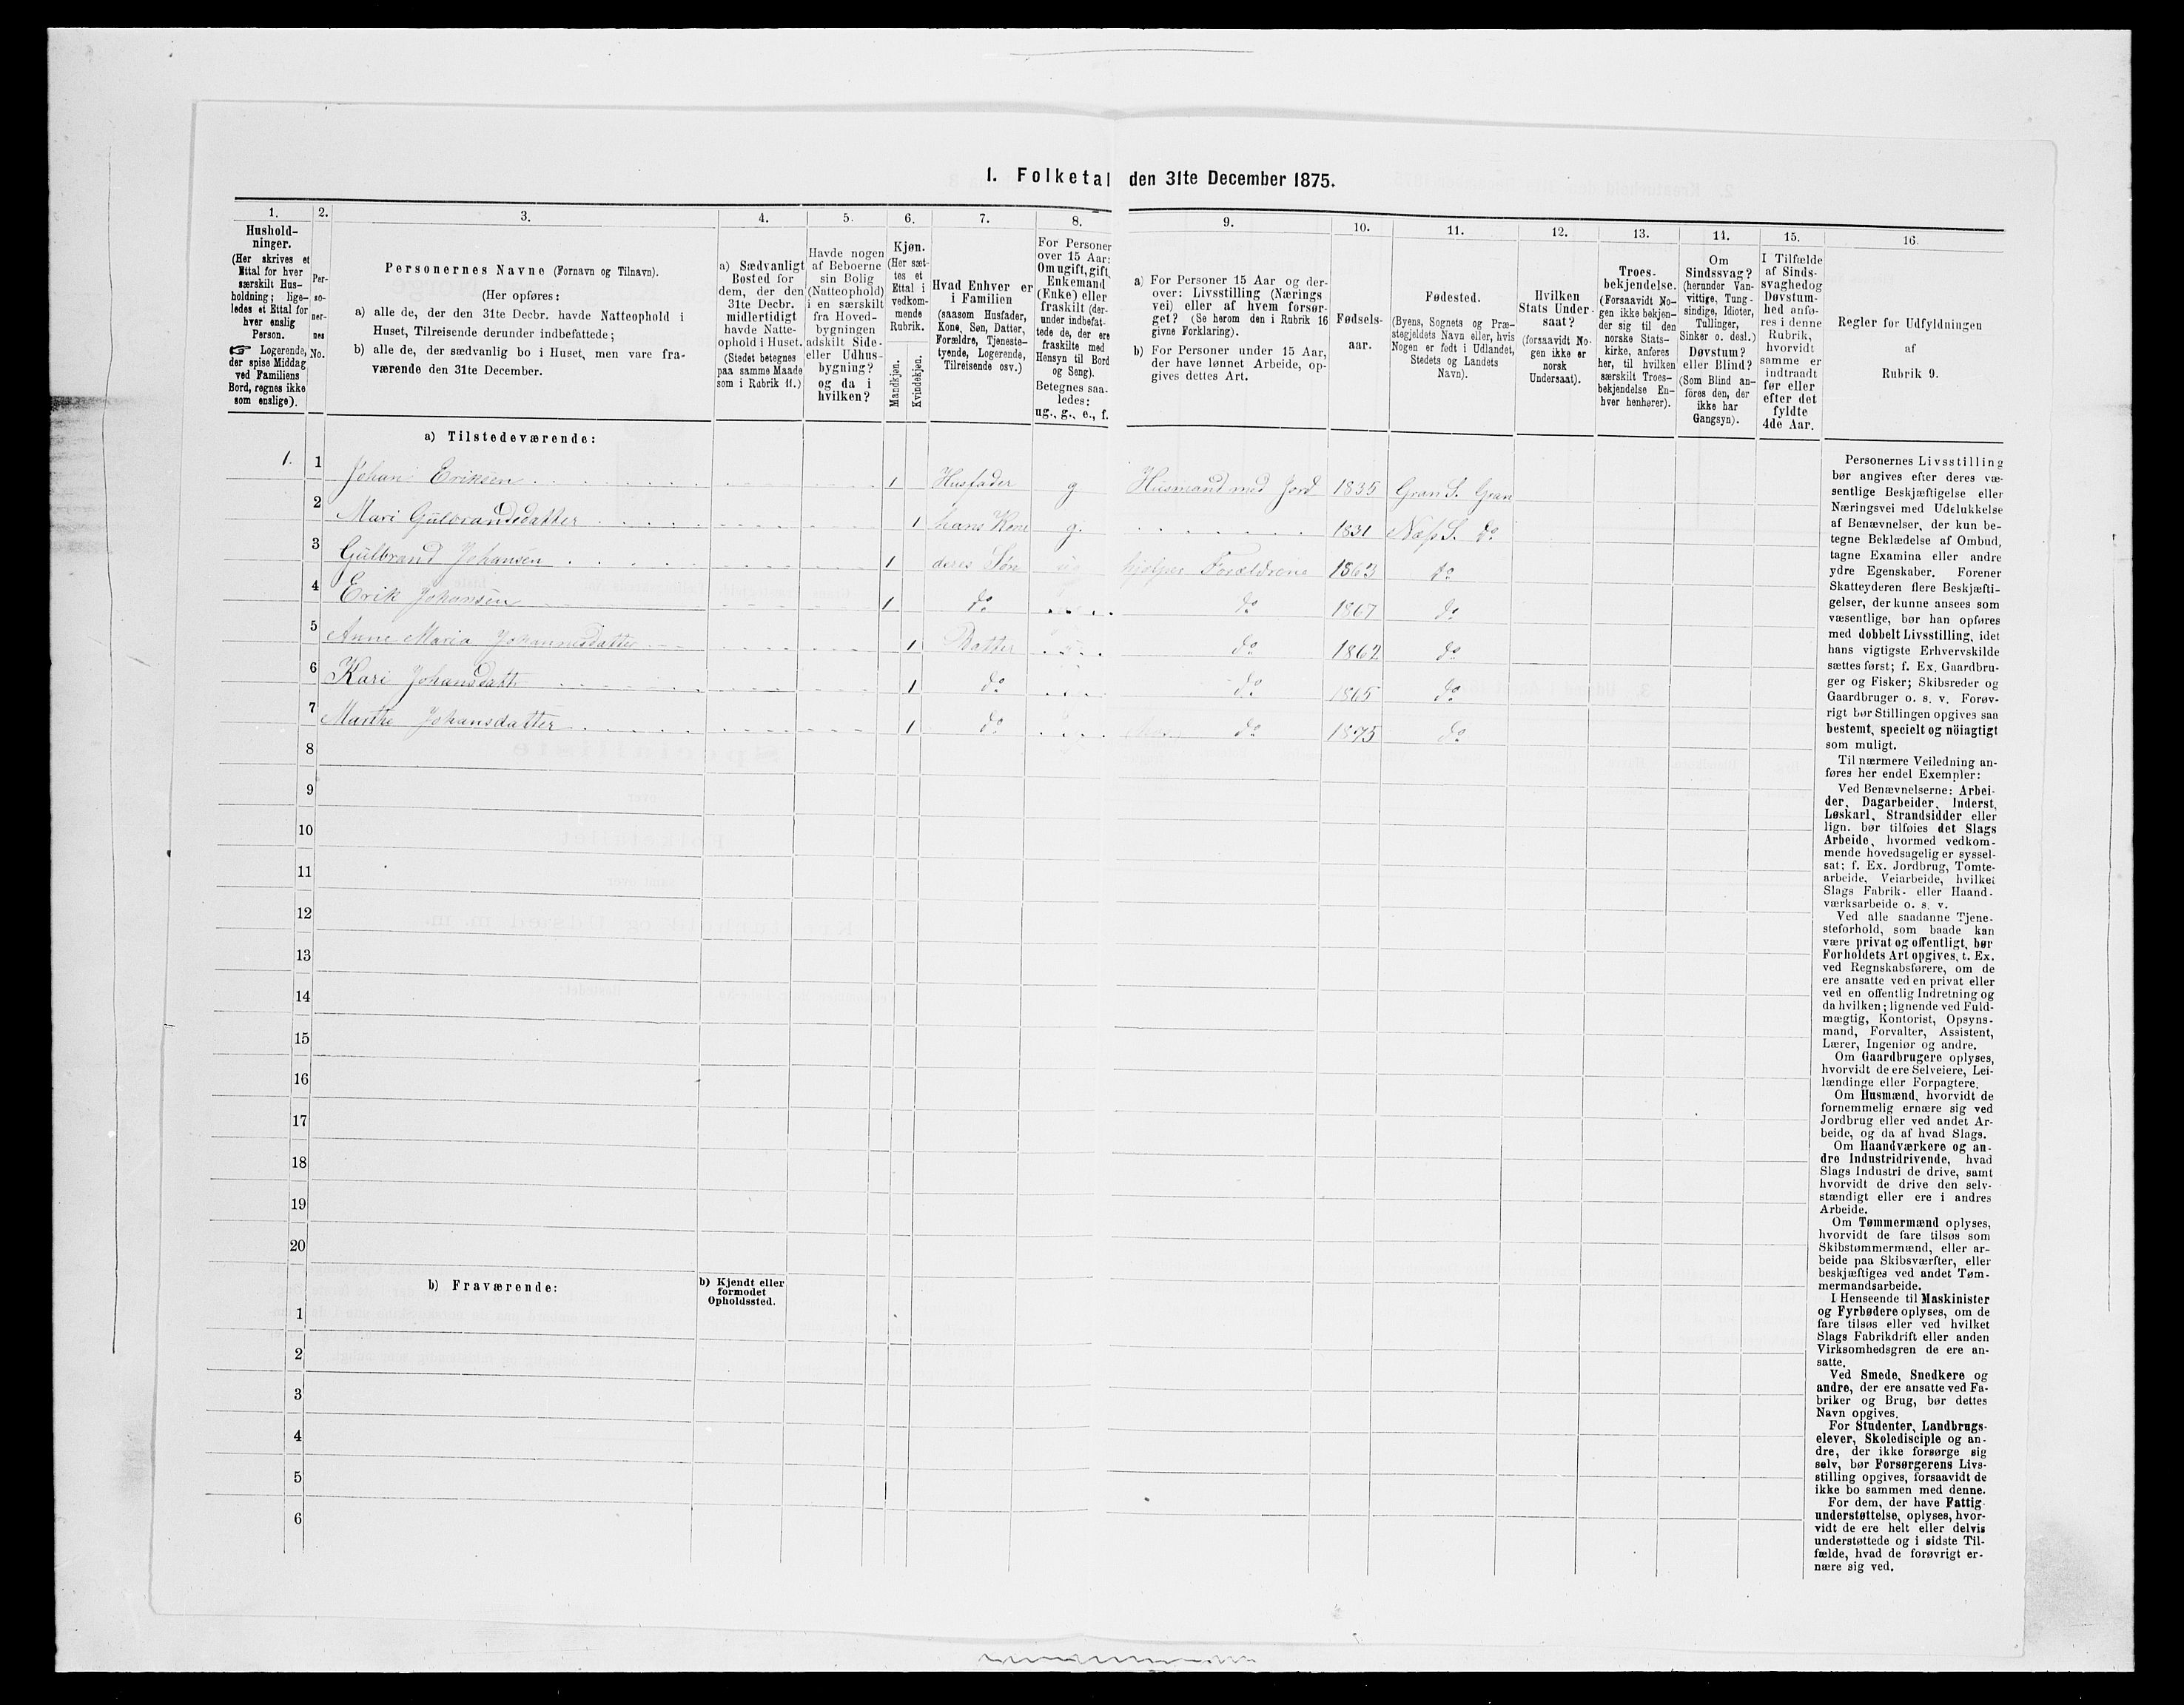 1. Folketal den 31te December 1875.
1.
Hushold-
ninger.
(Her skrives et
Ettal for hver
særskilt Hus-
holdning; lige-
ledes et Ettal for
hver enslig
Person.
☞ Logerende,
der spise Middag
ved Familiens
Bord, regnes ikke
som enslige).
2.
Per-
so-
ner-
nes
No.
3.
Personernes Navne (Fornavn og Tilnavn).
(Her opføres:
a) alle de, der den 31te Decbr. havde Natteophold i
Huset, Tilreisende derunder indbefattede;
b) alle de, der sædvanlig bo i Huset, men vare fra-
værende den 31te December.
4.
a) Sædvanligt
Bosted for
dem, der den
31te Decbr.
midlertidigt
havde Natte-
ophold i Huset.
(Stedet betegnes
paa samme Maade
som i Rubrik 11.)
5.
Havde nogen
af Beboerne
sin Bolig
(Natteophold)
i en særskilt
fra Hoved-
bygningen
adskilt Side-
eller Udhus-
bygning?
og da i
hvilken?
6.
Kjøn.
(Her sæt-
tes et
Ettal i
vedkom-
mende
Rubrik.
Mandkjøn.
Kvindekjøn.
7.
Hvad Enhver er
i Familien
(saasom Husfader,
Kone, Søn, Datter,
Forældre, Tjeneste-
tyende, Logerende,
Tilreisende osv.)
8.
For Personer
over 15 Aar:
Om ugift, gift,
Enkemand
(Enke) eller
fraskilt (der-
under indbefat-
tede de, der ere
fraskilte med
Hensyn til Bord
og Seng).
Betegnes saa-
ledes:
ug., g., e., f.
9.
a) For Personer 15 Aar og der-
over: Livsstilling (Nærings
vei) eller af hvem forsør-
get? (Se herom den i Rubrik 16
givne Forklaring).
b) For Personer under 15 Aar,
der have lønnet Arbeide, op-
gives dettes Art.
10.
Fødsels-
aar.
11.
Fødested.
(Byens, Sognets og Præ-
stegjeldets Navn eller, hvis
Nogen er født i Udlandet,
Stedets og Landets
Navn).
12.
Hvilken
Stats Under-
saat?
(forsaavidt No-
gen ikke er
norsk
Undersaat).
13.
Troes-
bekjendelse.
(Forsaavidt No-
gen ikke bekjen-
der sig til den
norske Stats-
kirke, anføres
her, til hvilken
særskilt Troes-
bekjendelse En-
hver henhører).
14.
Om
Sindssvag?
(herunder Van-
vittige, Tung-
sindige, Idioter,
Tullinger,
Sinker o. desl.)
Døvstum?
eller Blind?
(Som Blind an-
föres den, der
ikke har
Gangsyn).
15.
I Tilfælde
af Sinds-
svaghedog
Døvstum-
hed anfø-
res i denne
Rubrik,
hvorvidt
samme er
indtraadt
før eller
efter det
fyldte
4de Aar.
16.
Regler for Udfyldningen
af
Rubrik 9.
a) Tilstedeværende:
1. 1 Johan Eriksen 1 Husfader g Husmand med Jord 1835 Gran S. Gran
2 Mari Gulbrandsdatter 1 hans Kone g. 1831 Næs S. do
3 Gulbrand Johansen 1 deres Søn ug hjelper Forældrene 1863 do
4 Erik Johansen 1 do do 1867 do
5 Anne Maria Johannesdatter 1 Datter do 1862 do
6 Kari Johansdatt 1 do do 1865 do
7 Marthe Johansdatter 1 do do 1875 do
8
9
10
11
12
13
14
15
16
17
18
19
20
b) Fraværende:
b) Kjendt eller
formodet
Opholdssted.
1
2
3
4
5
6
Personernes Livsstilling
bør angives efter deres væ-
sentlige Beskjæftigelse eller
Næringsvei med Udelukkelse
af Benævnelser, der kun be-
tegne Beklædelse af Ombud,
tagne Examina eller andre
ydre Egenskaber. Forener
Skatteyderen flere Beskjæfti-
gelser, der kunne ansees som
væsentlige, bør han opføres
med dobbelt Livsstilling, idet
hans vigtigste Erhvervskilde
sættes først; f. Ex. Gaardbru-
ger og Fisker; Skibsreder og
Gaardbruger o. s. v. Forøv-
rigt bør Stillingen opgives saa
bestemt, specielt og nöiagtigt
som muligt.
Til nærmere Veiledning an-
føres her endel Exempler:
Ved Benævnelserne: Arbei-
der, Dagarbeider, Inderst,
Løskarl, Strandsidder eller
lign. bør tilføies det Slags
Arbeide, hvormed vedkom-
mende hovedsagelig er syssel-
sat; f. Ex. Jordbrug, Tomte-
arbeide, Veiarbeide, hvilket
Slags Fabrik- eller Haand-
værksarbeide o. s. v.
Ved alle saadanne Tjene-
steforhold, som baade kan
være privat og offentligt, bør
Forholdets Art opgives, t. Ex.
ved Regnskabsførere, om de
ere ansatte ved en privat eller
ved en offentlig Indretning og
da hvilken; lignende ved Fuld-
mægtig, Kontorist, Opsyns-
mand, Forvalter, Assistent,
Lærer, Ingeniør og andre.
Om Gaardbrugere oplyses,
hvorvidt de ere Selveiere, Lei-
lændinge eller Forpagtere.
Om Husmænd, hvorvidt de
fornemmelig ernære sig ved
Jordbrug eller ved andet Ar-
beide, og da af hvad Slags.
Om Haandværkere og an-
dre Industridrivende, hvad
Slags Industri de drive, samt
hvorvidt de drive den selv-
stændigt eller ere i andres
Arbeide.
Om Tømmermænd oplyses,
hvorvidt de fare tilsøs som
Skibstømmermænd, eller ar-
beide paa Skibsværfter, eller
beskjæftiges ved andet Tøm-
mermandsarbeide.
I Henseende til Maskinister
og Fyrbødere oplyses, om de
fare tilsøs eller ved hvilket
Slags Fabrikdrift eller anden
Virksomhedsgren de ere an-
satte.
Ved Smede, Snedkere og
andre, der ere ansatte ved Fa-
briker og Brug, bør dettes
Navn opgives.
For Studenter, Landbrugs-
elever, Skoledisciple og an-
dre, der ikke forsørge sig
selv, bør Forsørgerens Livs-
stilling opgives, forsaavidt de
ikke bo sammen med denne.
For dem, der have Fattig-
understøttelse, oplyses, hvor-
vidt de ere helt eller delvis
understøttede og i sidste Til-
fælde, hvad de forøvrigt er-
nære sig ved.